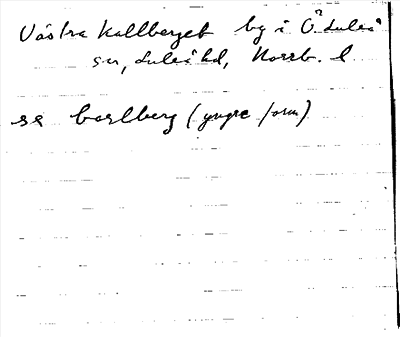 Västra Kallberget by i Ö. Luleå
sn, Luleå hd, Norrb. l
se barlberg (yngre form)